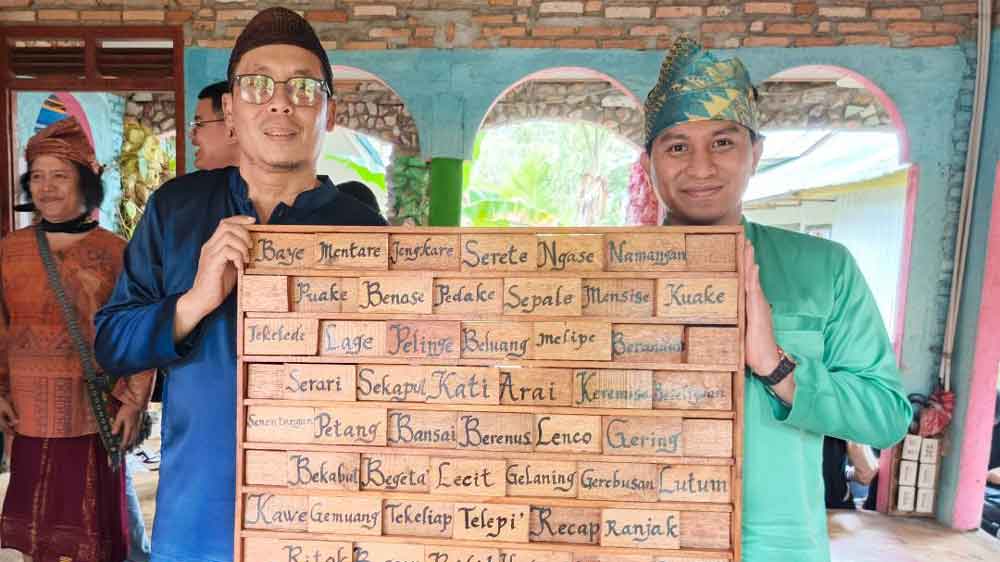 Baye Mentare Jengkare Serete Ngase Namangan
Puake Benase Pedake Sepale Mensige Kuake
Tekelede Lage Pelinge Beluang Melipe
Serari Sekapul Kati Arai Keremise
Senentangan Petang Bansai Berenus Lenco Gering
Bekabut Begeta' Lecit Gelaning Gerebusan Lutum
Kawe Gemuang Tekeliap Telepi' Recap Ranjak